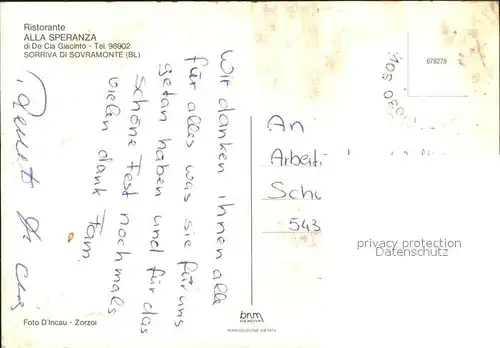 Ristorante
ALLA SPERANZA
di De Cia Giacinto - Tel. 98902
SORRIVA DI SOVRAMONTE (BL)
Wir danken ihnen alle
für alles was sie für uns
getan haben und für das
schöne Fest nochmals
vielen dank Fam.
De Cia
678278
An
Arbeit
Schu
543
privacy protection
Datenschutz
bnm
GENOVA
Foto D'Incau - Zorzoi